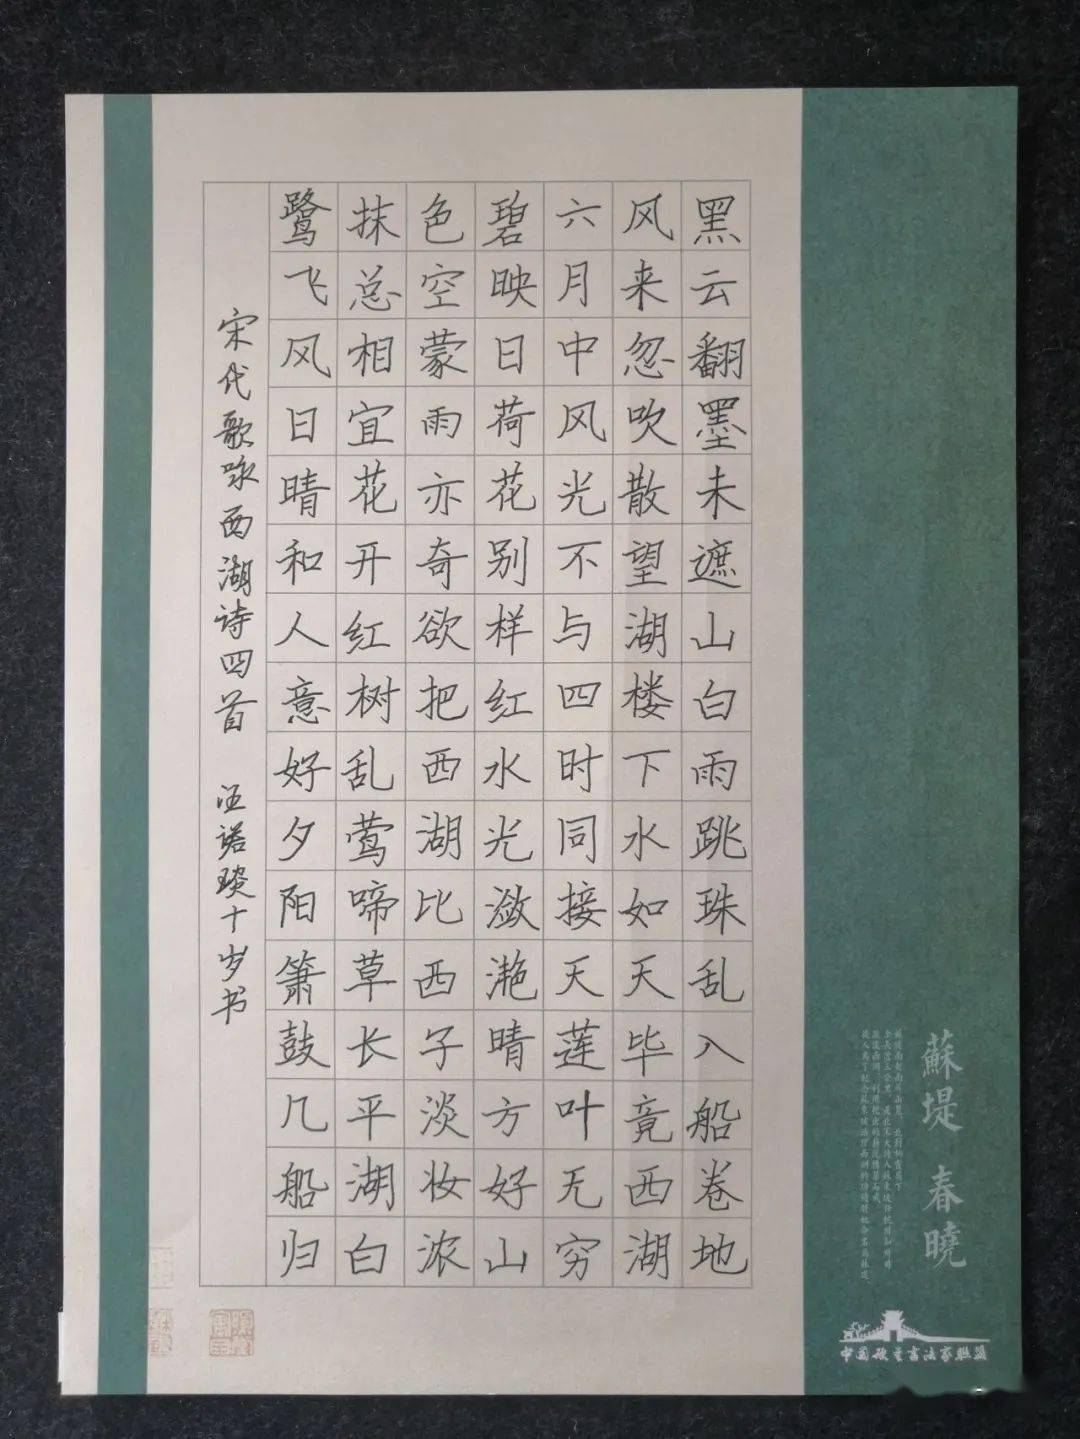 黑云翻墨未遮山白雨跳珠乱入船卷地
风来忽吹散望湖楼下水如天毕竟西湖
六月中风光不与四时同接天莲叶无穷
碧映日荷花别样红水光潋滟晴方好山
色空蒙雨亦奇欲把西湖比西子淡妆浓
抹总相宜花开红树乱莺啼草长平湖白
鹭飞风日晴和人意好夕阳箫鼓几船归
宋代歌咏西湖诗四首 汪诺琰十岁书
蘇堤 春曉
中国硬笔书法家联盟